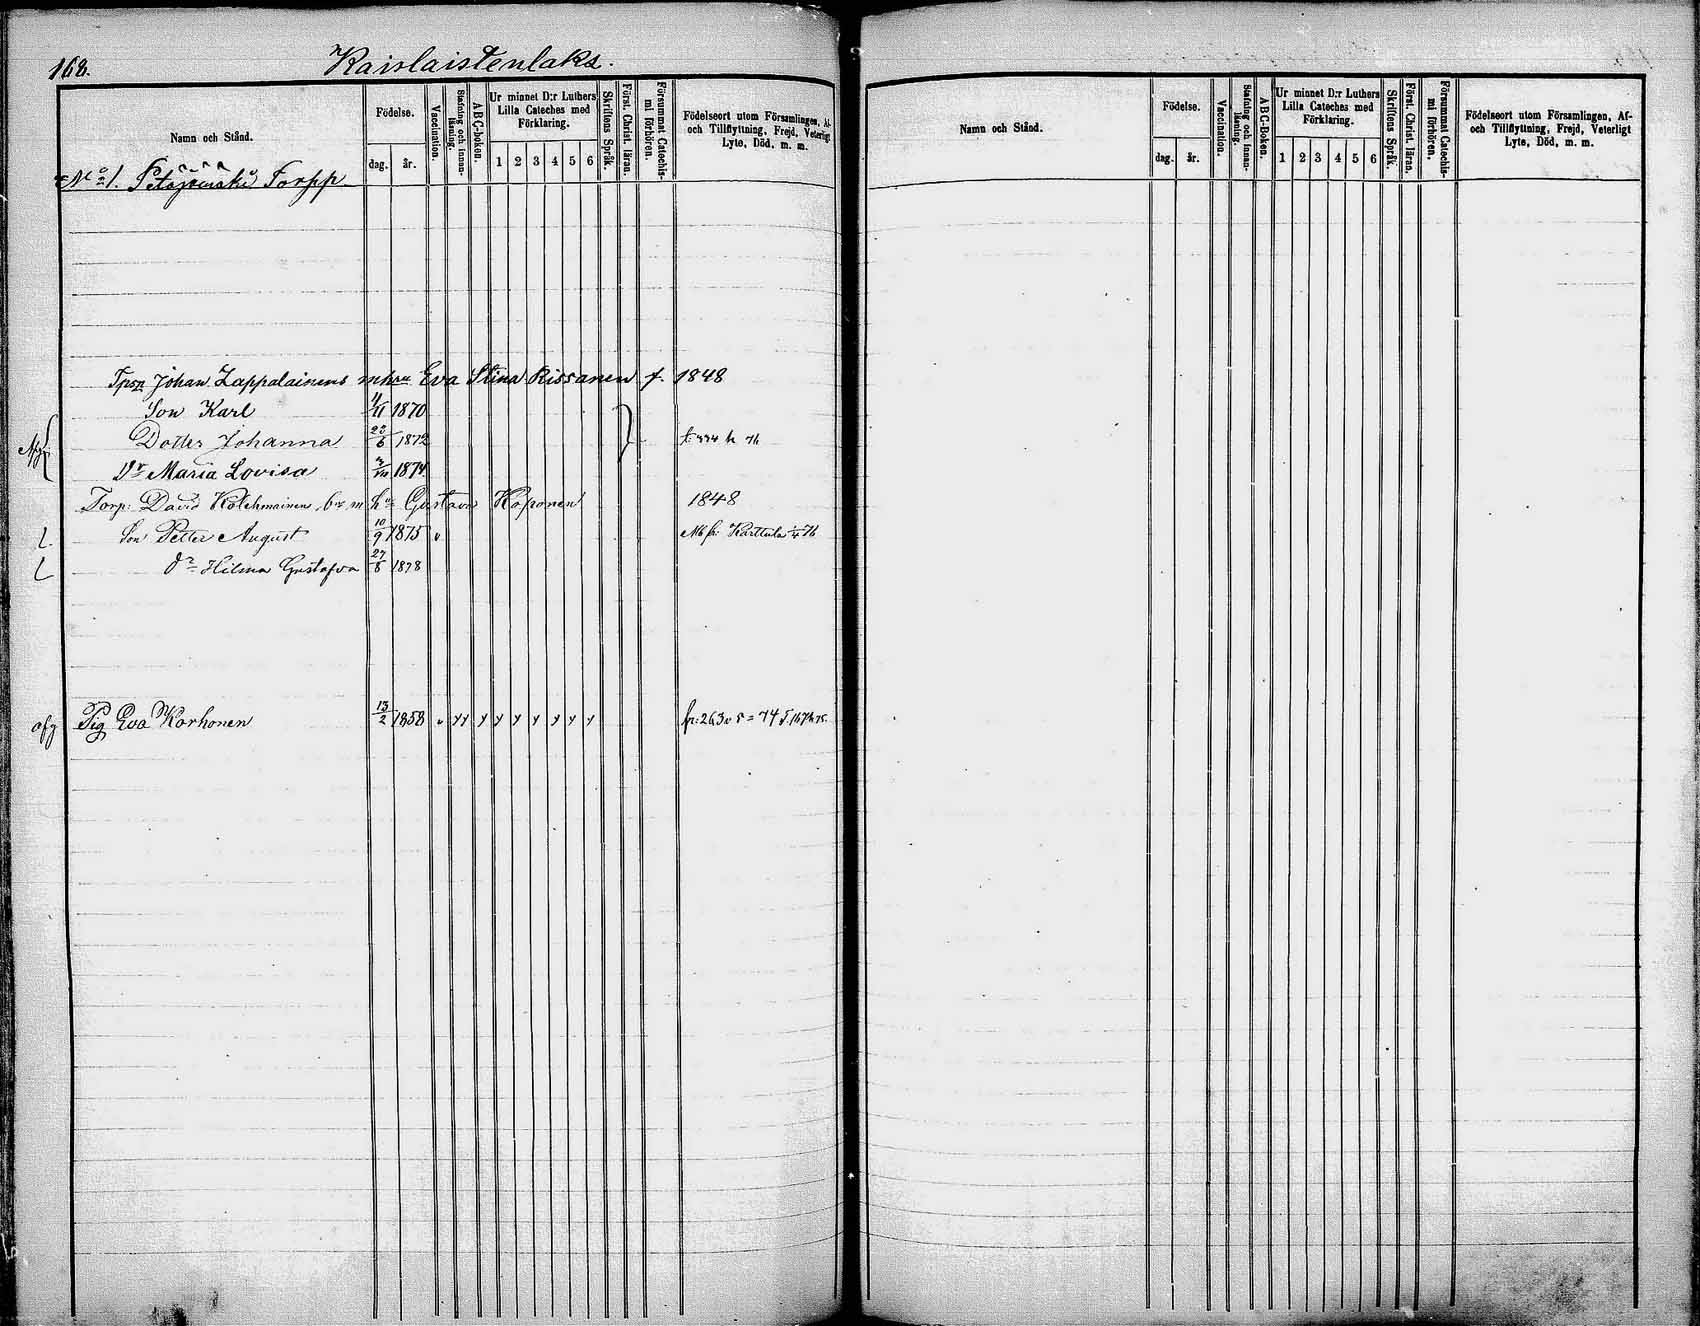 168.
Kaislaistenlaks.
Namn och Stånd.
Födelse.
dag. år.
Vaccination.
Stafning och Innanläsning.
ABC-boken.
Ur minnet D:r Luthers Lilla Cateches med Förklaring.
1 2 3 4 5 6
Skriftens Språk.
Först. Christ. läran.
Försummat Catechismi förhören.
Födelseort utom Församlingen, Af- och Tillflyttning, Frejd, Veterligt Lyte, Död, m. m.
No 1. Petäjämäki Torpp
Tpsn Johan Lappalainens mhru Eva Stina Rissanen f. 1848
Son Karl 11/11 1870
Dotter Johanna 23/6 1872
Dr Maria Lovisa 1874
Torp: David Kolehmainens hu Gustava Koponen 1848
Son Petter August 10/9 1875 Mb fr: Karttula 76
Dr Hilma Gustafva 27/8 1878
afg Pig Eva Korhonen 13/2 1858 v y y y y y y y y y fr: 263
Namn och Stånd.
Födelse.
dag. år.
Vaccination.
Stafning och Innanläsning.
ABC-Boken.
Ur minnet D:r Luthers Lilla Cateches med Förklaring.
1 2 3 4 5 6
Skriftens Språk.
Först. Christ. läran.
Försummat Catechismi förhören.
Födelseort utom Församlingen, Af- och Tillflyttning, Frejd, Veterligt Lyte, Död, m. m.